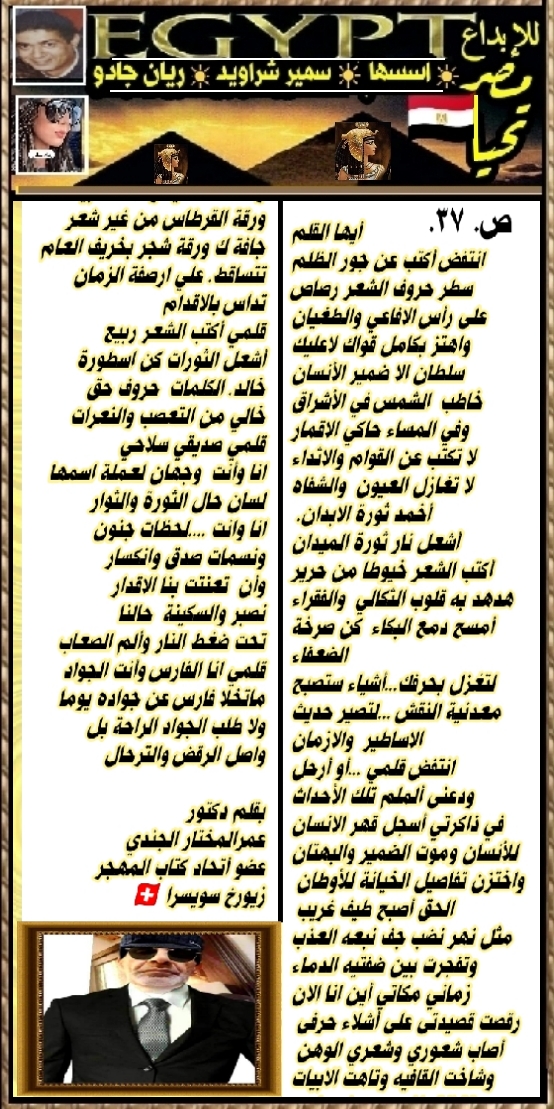 EGYPT
للإبداع
مصر
تحيا
اسسها ☀ سمير شراويد ☀ ريان جادو
ص. ٣٧.
أيها القلم
انتفض أكتب عن جور الظلم
سطر حروف الشعر رصاص
على رأس الافاعي والطغيان
واهتز بكامل قواك لاعليك
سلطان الا ضمير الأنسان
خاطب الشمس في الأشراق
وفي المساء حاكي الاقمار
لا تكتب عن القوام والاثداء
لا تغازل العيون والشفاه
أخمد ثورة الابدان.
أشعل نار ثورة الميدان
أكتب الشعر خيوطا من حرير
هدهد به قلوب الثكالي والفقراء
أمسح دمع البكاء كن صرخة
الضعفاء
لتغزل بحرفك...أشياء ستصبح
معدنية النقش ...لتصير حديث
الاساطير والازمان
انتفض قلمي ...أو أرحل
ودعنى ألملم تلك الأحداث
في ذاكرتي أسجل قهر الانسان
للأنسان وموت الضمير والبهتان
واختزن تفاصيل الخيانة للأوطان
الحق أصبح طيف غريب
مثل نهر نضب جف نبعه العذب
وتفجرت بين ضفتيه الدماء
زماني مكاتي أين انا الان
رقصت قصيدتى على أشلاء حرفى
أصاب شعوري وشعري الوهن
وشاخت القافيه وتاهت الابيات
ورقة القرطاس من غير شعر
جافة ك ورقة شجر بخريف العام
تتساقط. علي ارصفة الزمان
تداس بالاقدام
قلمي أكتب الشعر ربيع
أشعل الثورات كن اسطورة
خالد. الكلمات حروف حق
خالي من التعصب والنعرات
قلمي صديقي سلاحي
انا وأنت وجهان لعملة اسمها
لسان حال الثورة والثوار
انا وانت ....لحظات جنون
ونسمات صدق وانكسار
وأن تعنتت بنا الاقدار
نصبر والسكينة حالنا
تحت ضغط النار وألم الصعاب
قلمي انا الفارس وأنت الجواد
ماتخلا فارس عن جواده يوما
ولا طلب الجواد الراحة بل
واصل الرقض والترحال
بقلم دكتور
عمرالمختار الجندي
عضو أتحاد كتاب المهجر
زيورخ سويسرا 🇨🇭